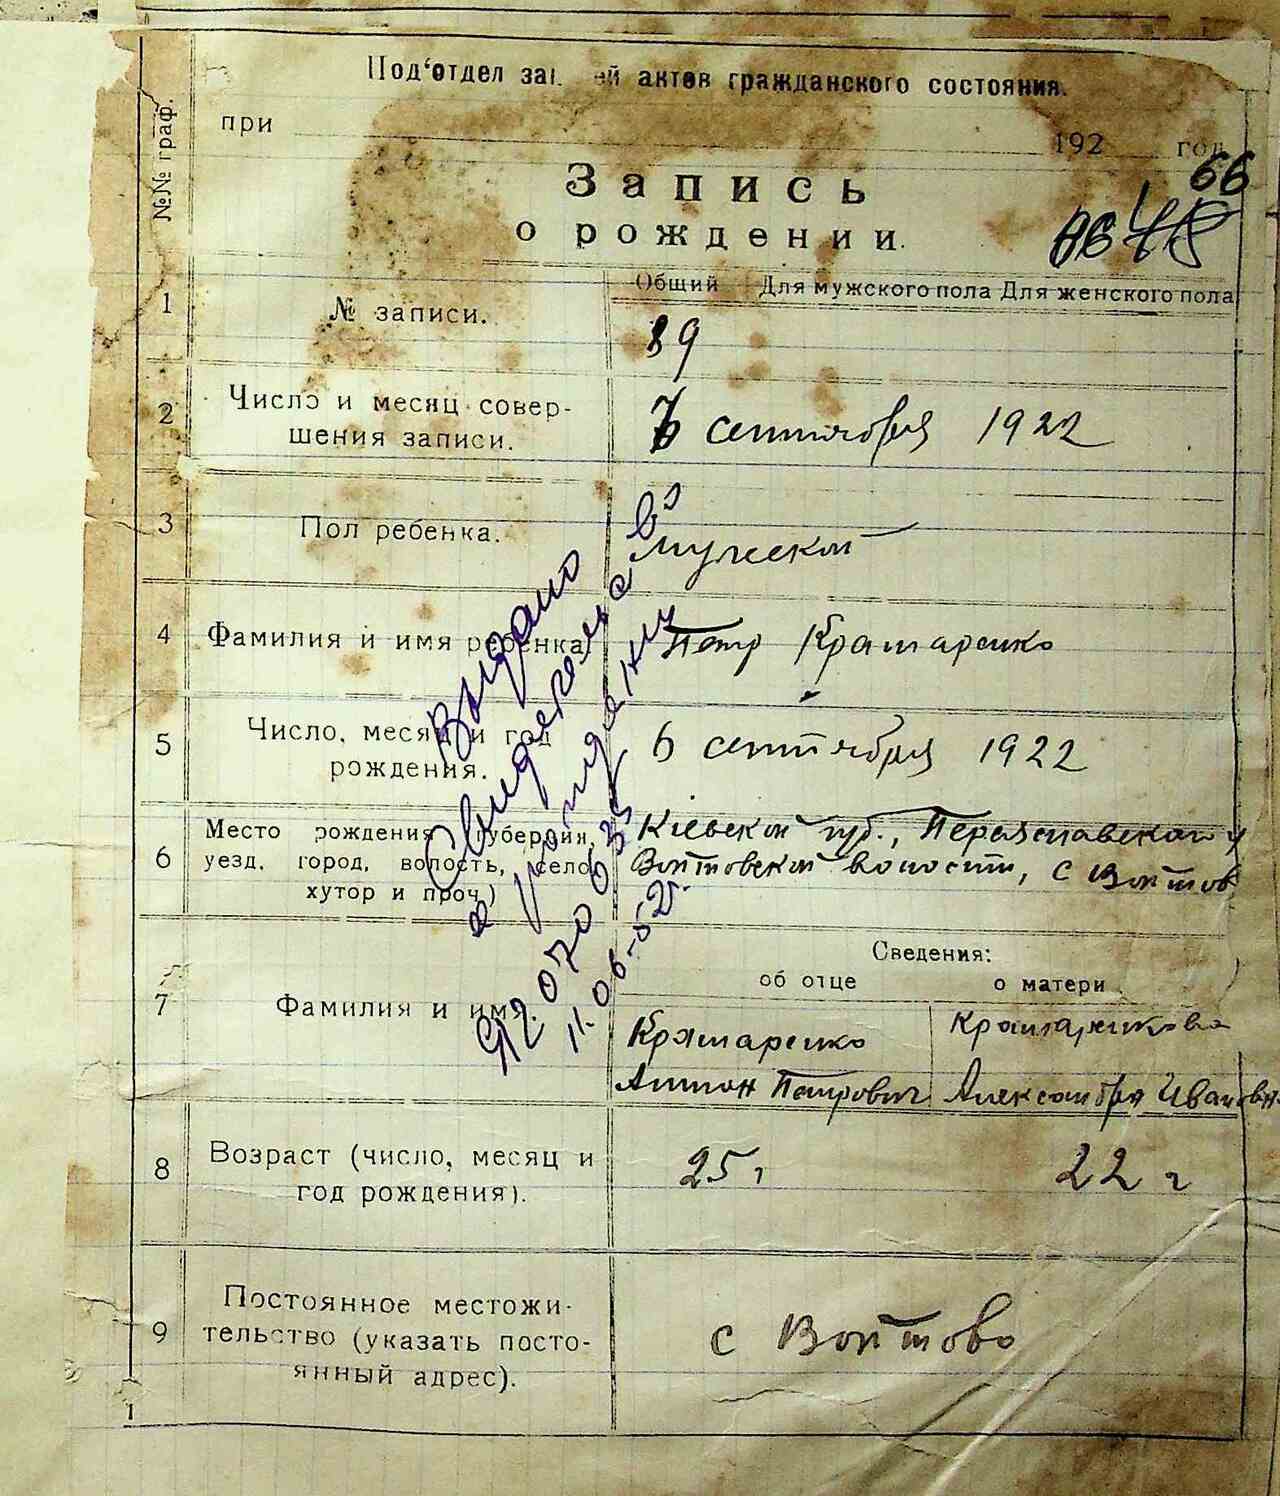 Под'отдел за ей актов гражданского состояния.
при 192 год
66
Запись
о рождении.
№№ граф.
1 № записи. Общий Для мужского пола Для женского пола
89
2 Число и месяц совер-
шения записи.
7 сентября 1922
3 Пол ребенка. мужской
4 Фамилия и имя ребенка Петр Крамаренко
5 Число, месяц и год
рождения.
6 сентября 1922
6 Место рождения (губерния,
уезд, город, волость, село,
хутор и проч.)
Кіевской губ., Переяславской у
Войтовской волости, с Войтов
Выдано
Свидетельс
во
о рождении
070635
11.06-52г.
Сведения:
об отце о матери
7 Фамилия и имя.
Крамаренко
Антон Петрович
Крамаренкова
Александра Ивановн
8 Возраст (число, месяц и
год рождения).
25 г 22 г
9 Постоянное местожи-
тельство (указать посто-
янный адрес).
с Войтово
1